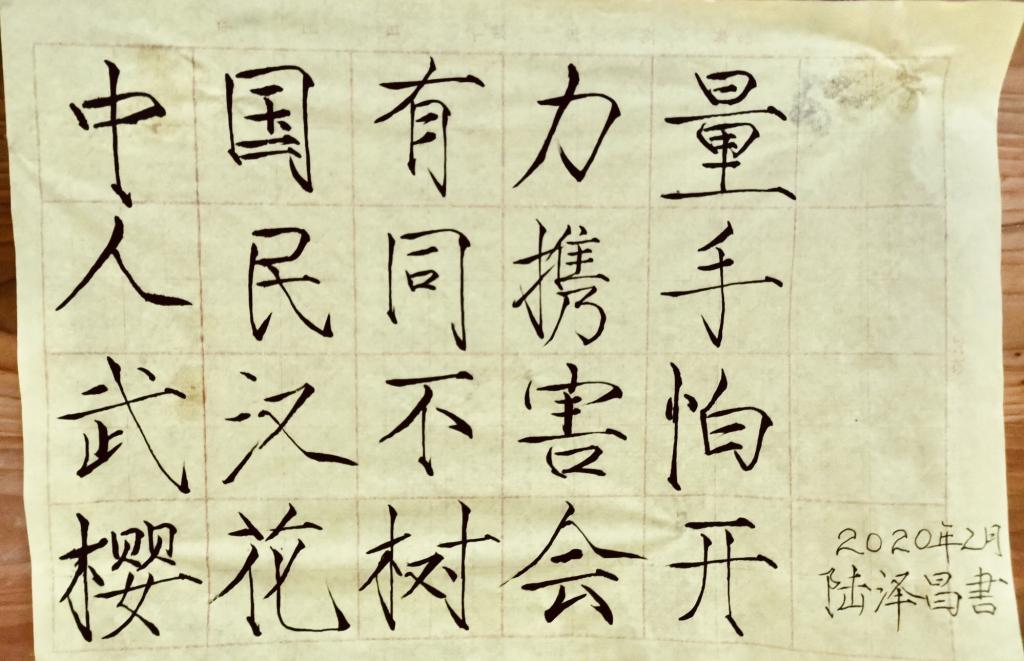 中国有力量
人民同携手
武汉不害怕
樱花树会开
2020年2月
陆泽昌書